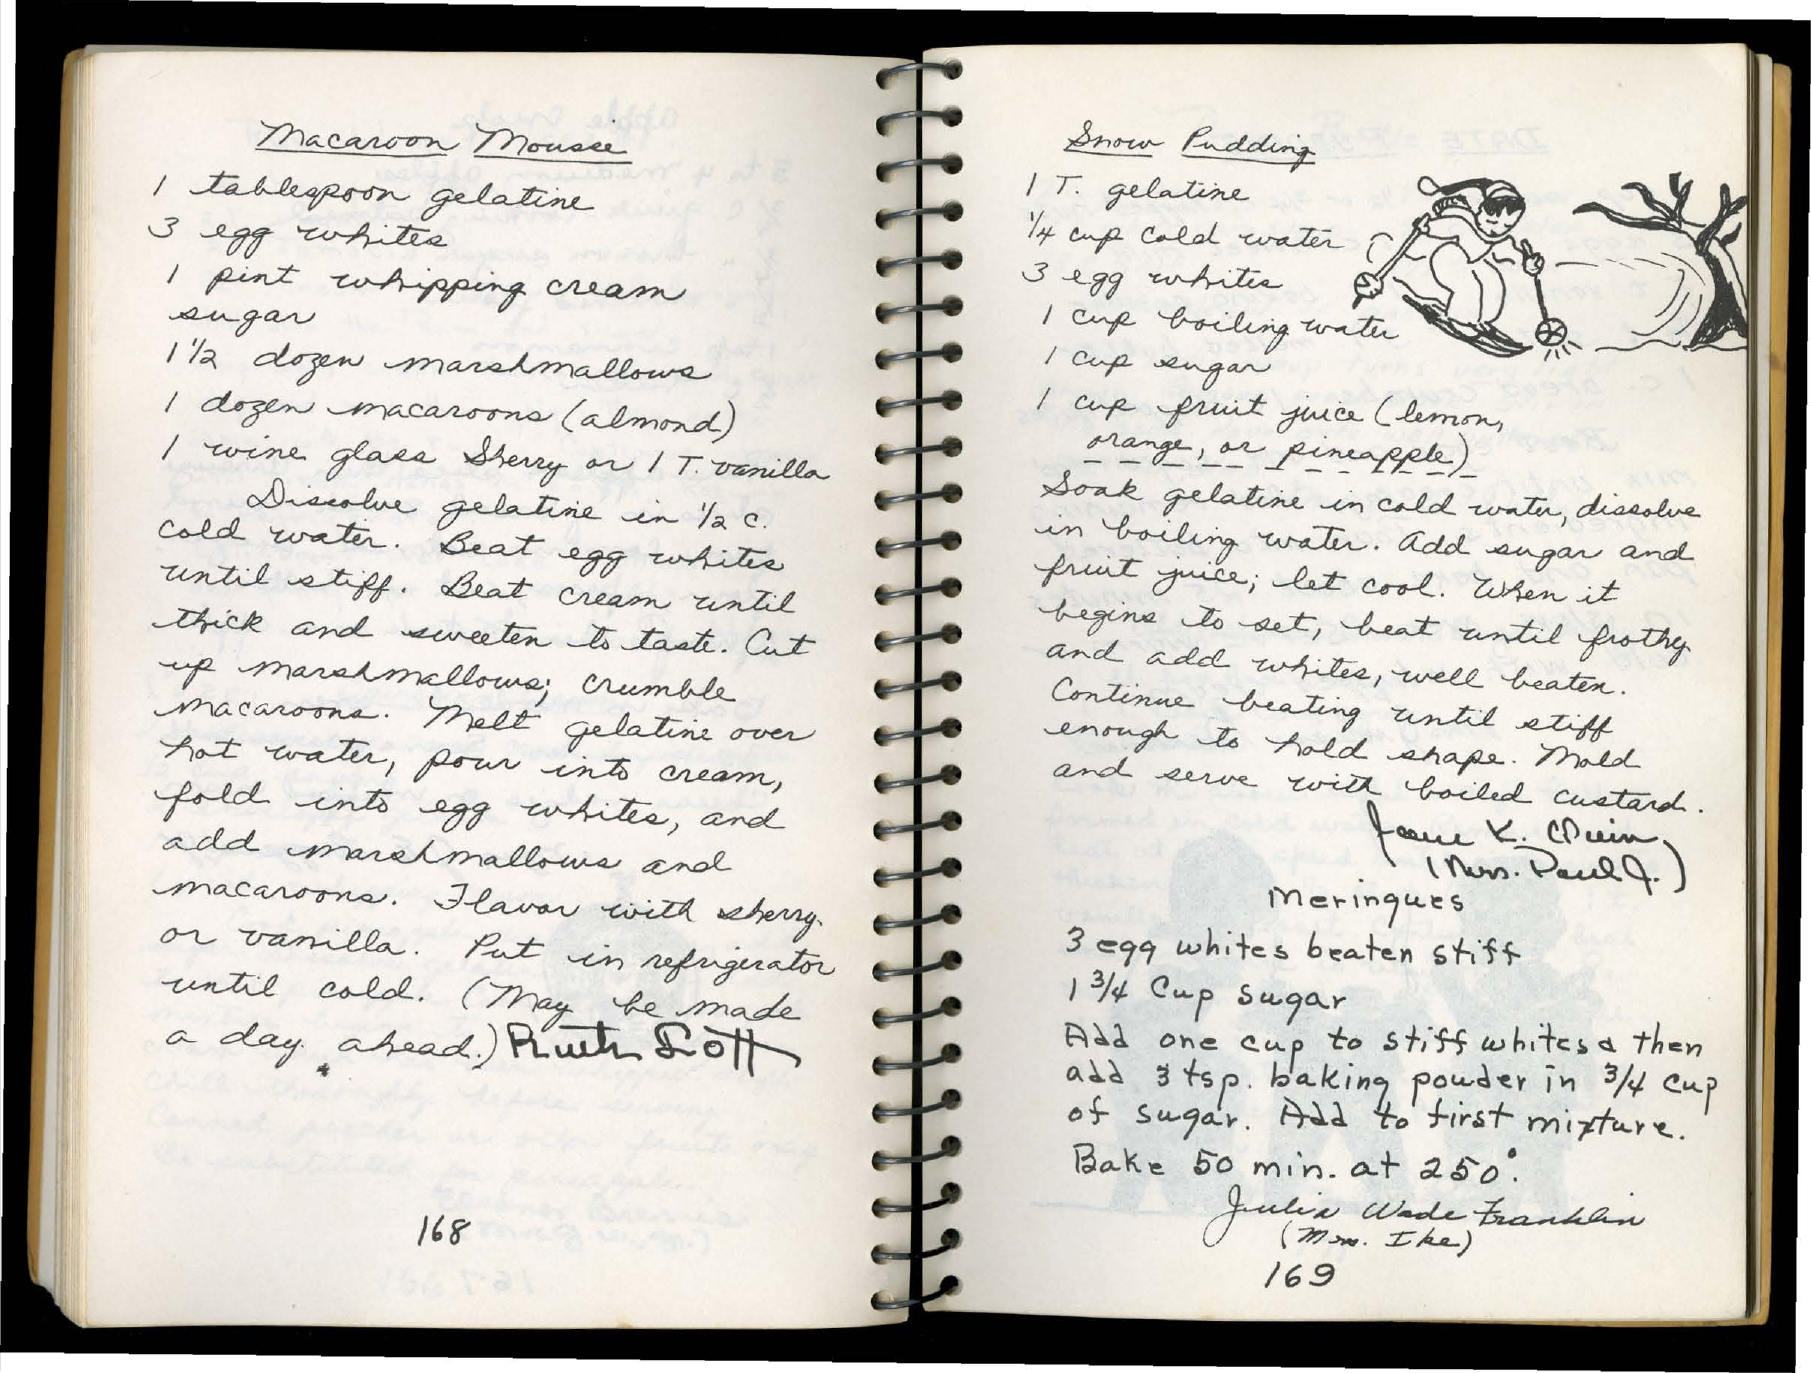 Macaroon Mousse
1 tablespoon gelatine
3 egg whites
1 pint whipping cream
sugar
1 1/2 dozen marshmallows
1 dozen macaroons (almond)
1 wine glass Sherry or 1 T. vanilla
Dissolve gelatine in 1/2 c.
cold water. Beat egg whites
until stiff. Beat cream until
thick and sweeten to taste. Cut
up marshmallows; crumble
macaroons. Melt gelatine over
hot water, pour into cream,
fold into egg whites, and
add marshmallows and
macaroons. Flavor with sherry
or vanilla. Put in refrigerator
until cold. (May be made
a day ahead.) Ruth Lott
168
Snow Pudding
1 T. gelatine
1/4 cup cold water
3 egg whites
1 cup boiling water
1 cup sugar
1 cup fruit juice (lemon,
orange, or pineapple)
Soak gelatine in cold water, dissolve
in boiling water. Add sugar and
fruit juice; let cool. When it
begins to set, beat until frothy
and add whites, well beaten.
Continue beating until stiff
enough to hold shape. Mold
and serve with boiled custard.
K.
(Mrs. Paul J.)
Meringues
3 egg whites beaten stiff
1 3/4 Cup sugar
Add one cup to stiff whites & then
add 3 tsp. baking powder in 3/4 cup
of sugar. Add to first mixture.
Bake 50 min. at 250°.
Julia Wade Franklin
(Mrs. Ike)
169